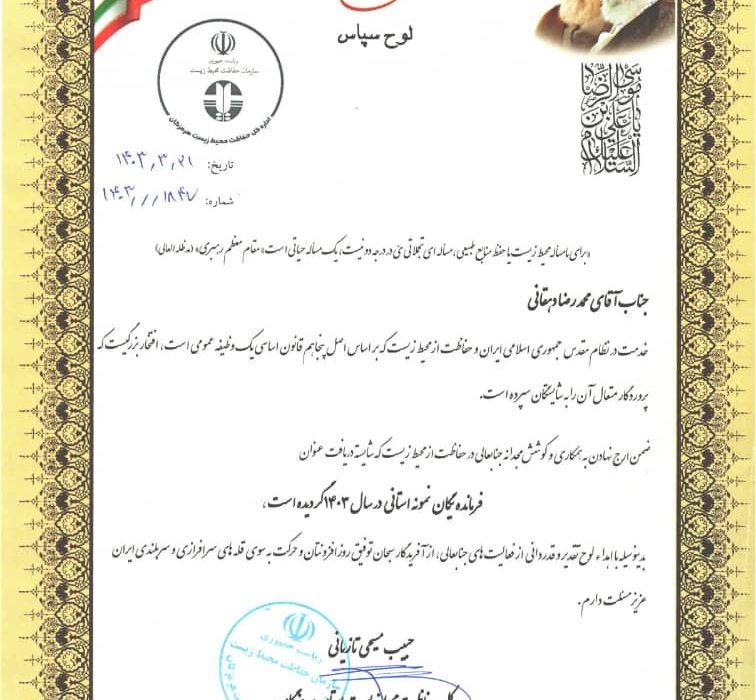 لوح سپاس
ریاست جمهوری
سازمان حفاظت محیط زیست
اداره کل حفاظت محیط زیست هرمزگان
السلام علیک یا علی بن موسی الرضا
تاریخ: ۱۴۰۳,۳,۲۱
شماره: ۱۴۰۳/۱۸۴۷
«برای ما مسأله محیط زیست یا حفظ منابع طبیعی، مسأله ای تجملاتی و در درجه دو نیست، یک مسأله حیاتی است» مقام معظم رهبری» (مدظله العالی)
جناب آقای محمدرضا دهقانی
خدمت در نظام مقدس جمهوری اسلامی ایران و حفاظت از محیط زیست که بر اساس اصل پنجاهم قانون اساسی یک وظیفه عمومی است، افتخار بزرگیست که
پروردگار متعال آن را به شایستگان سپرده است.
ضمن ارج نهادن به همکاری و کوشش مجدانه جنابعالی در حفاظت از محیط زیست که شایسته دریافت عنوان
فرمانده یگان نمونه استانی در سال ۱۴۰۳ گردیده است،
بدینوسیله با اهداء لوح تقدیر و قدردانی از فعالیت های جنابعالی، از آفریدگار سبحان توفیق روزافزونتان و حرکت به سوی قله های سرافرازی و سربلندی ایران
عزیز مسئلت دارم.
حبیب مسیحی تازیانی
ریاست جمهوری
سازمان حفاظت محیط زیست